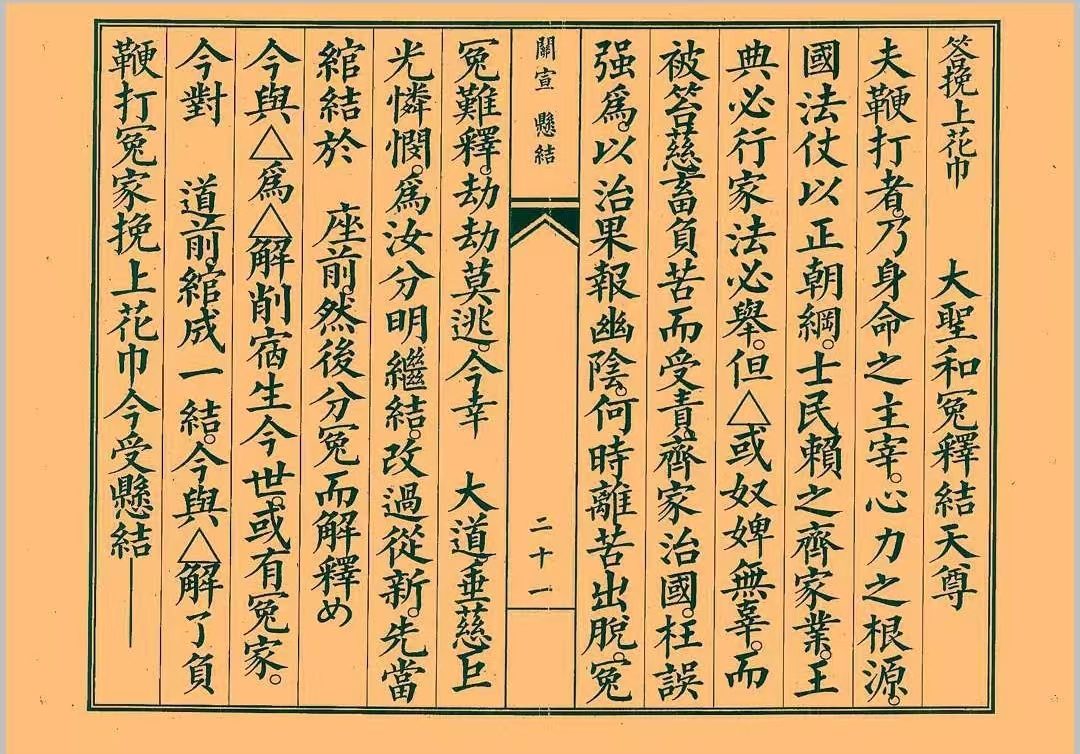 答挽上花巾　大聖和冤釋結天尊
夫鞭打者。乃身命之主宰。心力之根源。
國法仗以正朝綱。士民賴之齊家業。王
典必行家法必舉。但△或奴婢無辜。而
被笞慈。畜負苦而受責。齊家治國。枉誤
强為。以治果報幽陰。何時離苦出脫。冤
關宣　懸結
二十一
冤難釋。劫劫莫逃。今幸　大道。垂慈巨
光憐憫。為汝分明繼結。改過從新。先當
綰結於　座前。然後分冤而解釋め
今與△為△解削宿生今世。或有冤家。
今對　道前。綰成一結。今與△解了負
鞭打冤家挽上花巾今受懸結——